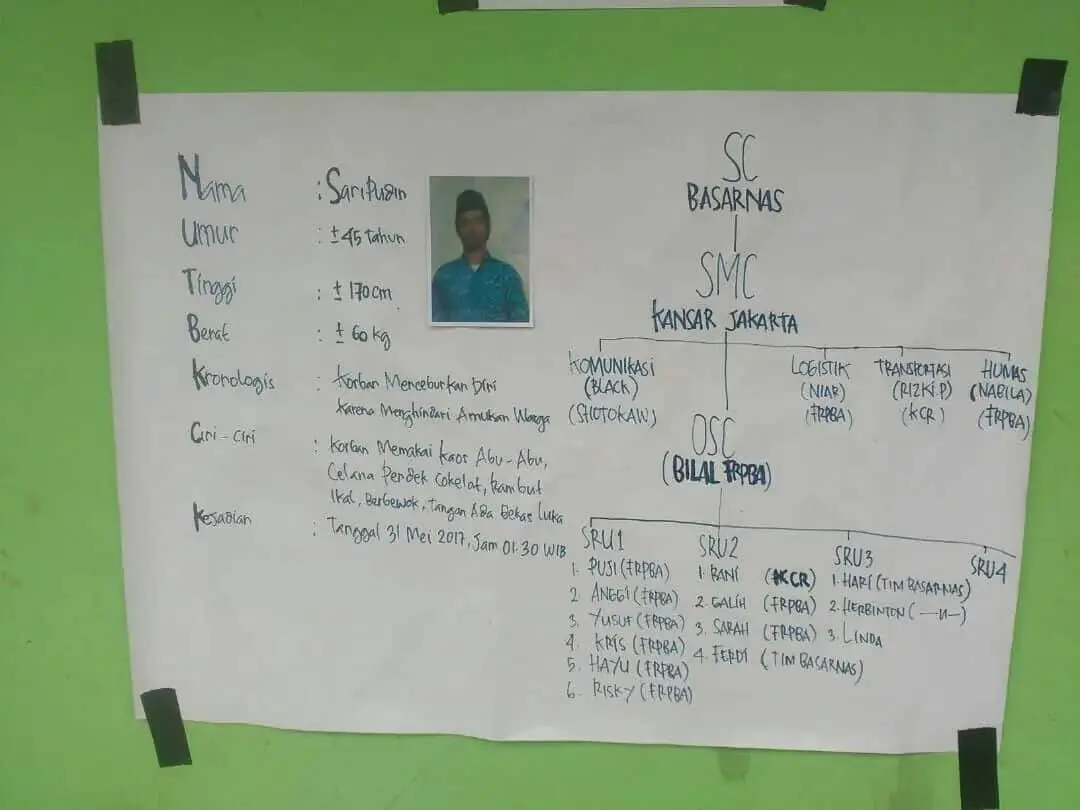 Nama : Saripudin
Umur : ± 45 tahun
Tinggi : ± 170 cm
Berat : ± 60 kg
Kronologis : Korban Menceburkan Diri
Karena Menghindari Amukan Warga
Ciri-ciri : Korban Memakai Kaos Abu-Abu,
Celana Pendek Cokelat, Rambut
Ikal, Berbewok, Tangan Ada Bekas Luka
Kejadian : Tanggal 31 Mei 2017, Jam 01.30 WIB
SC
BASARNAS
SMC
KANSAR JAKARTA
KOMUNIKASI
(BLACK)
(SHOTOKAW)
LOGISTIK
(NIAR)
(FRPBA)
TRANSPORTASI
(RIZKI.P)
(KCR)
HUMAS
(NABILA)
(FRPBA)
OSC
(BILAL FRPBA)
SRU1
1. PUJI (FRPBA)
2 ANGGI (FRPBA)
3. YUSUF (FRPBA)
4. KRIS (FRPBA)
5. HAYU (FRPBA)
6. RISKY (FRPBA)
SRU2
1. BANI (KCR)
2. GALIH (FRPBA)
3. SARAH (FRPBA)
4. FERDI (TIM BASARNAS)
SRU3
1. HARI (TIM BASARNAS)
2. HERBINTON (—〃—)
3. LINDA
SRU4